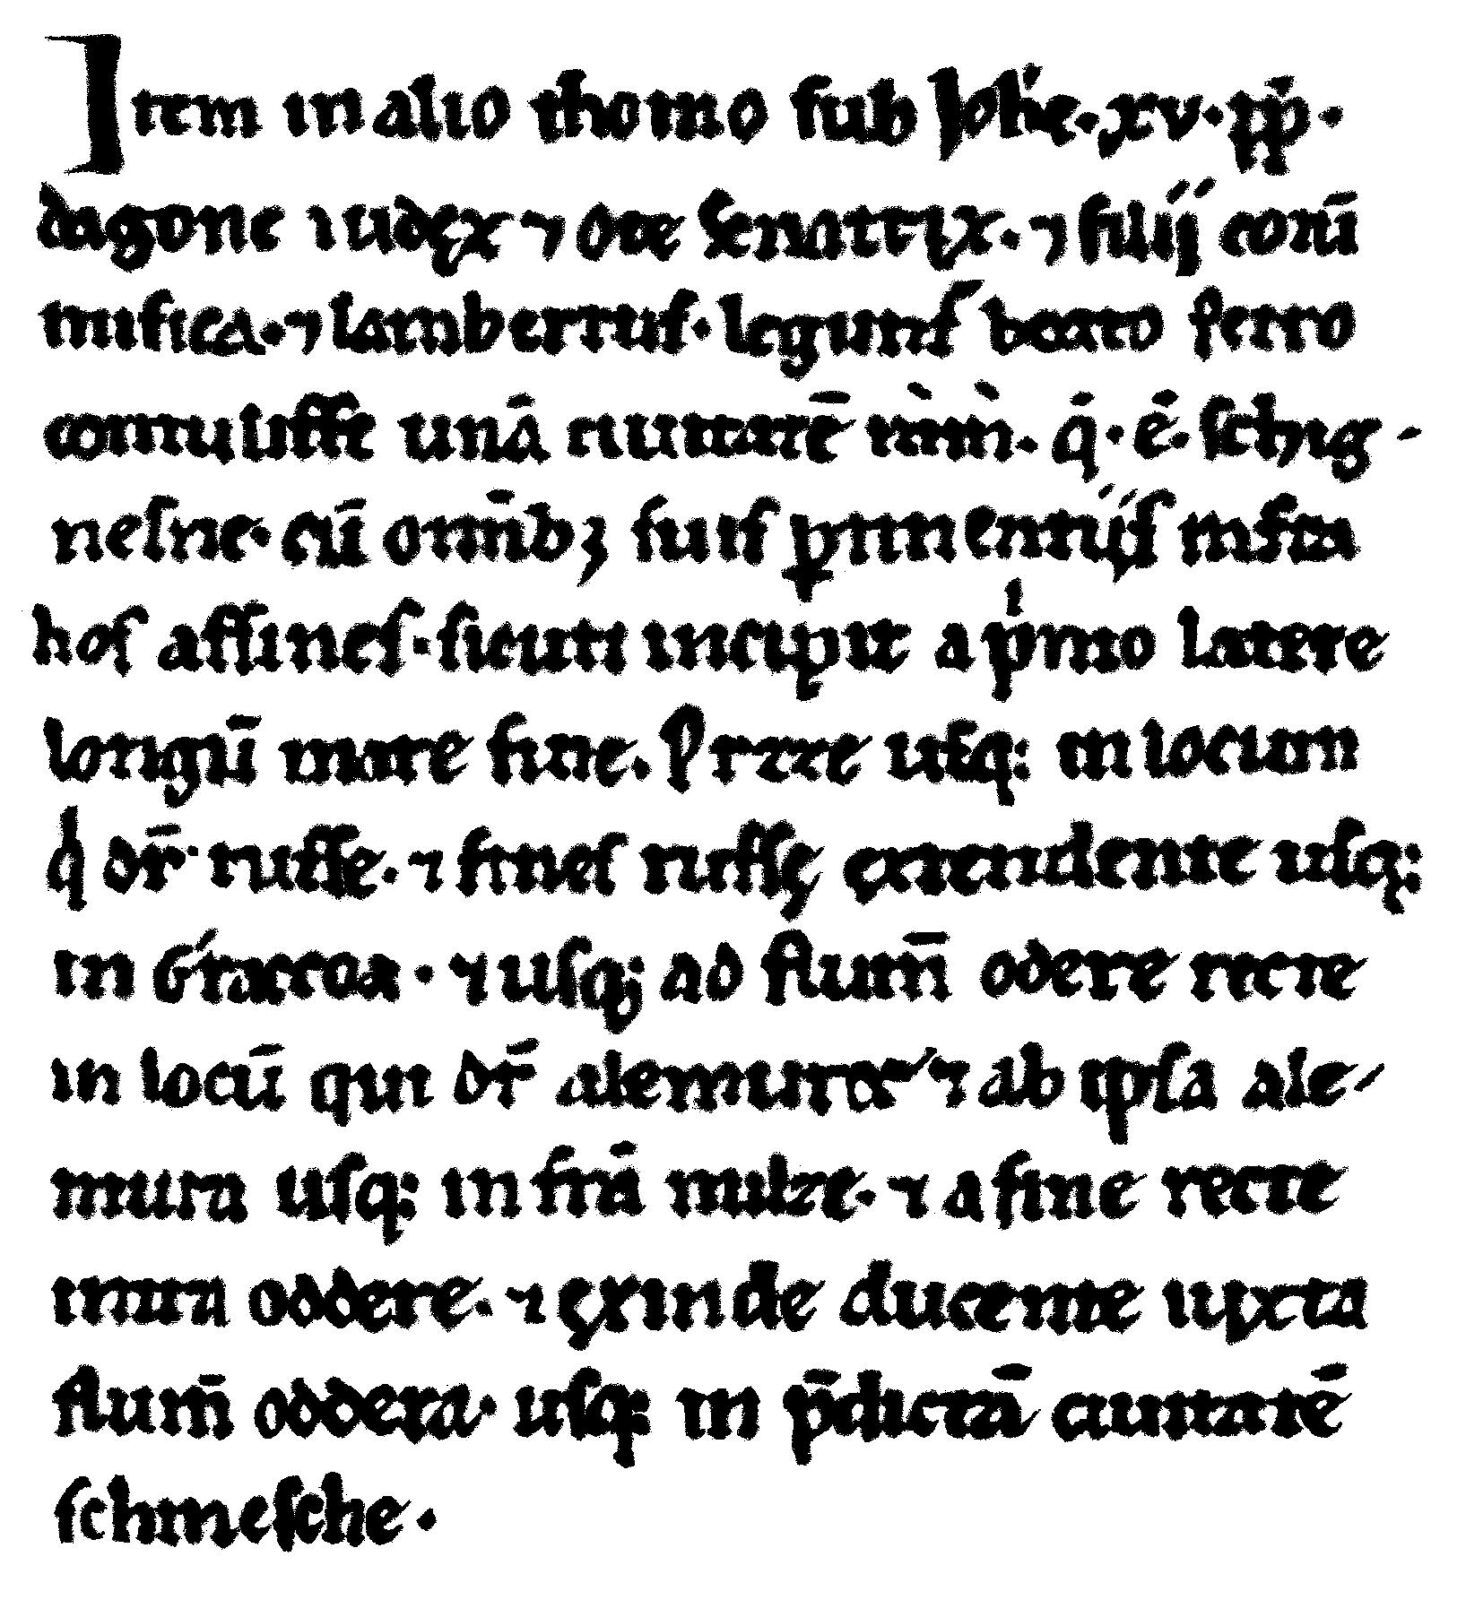 Item in alio thomo sub Ioħe. xv. p̄p.
dagone iudęx ⁊ ote senatrix. ⁊ filij com̄
misica. ⁊ lambertus. leguntˢ beato petro
contulisse unā ciuitatē ı̀nı̀n. q̄. ē. schig-
nesne. cū om̄ibꝫ suis ꝑtinentijs infra
hos affines. sicuti incipit a pͥmo latere
longū mare fine. Pruzze usqꝫ in locum
qͥ dr̄ russe. ⁊ fines russę ęxtendente usqꝫ
in Graccoa. ⁊ usqꝫ ad flum̄ odere recte
in locū qui dr̄ alemura ⁊ ab ipsa ale-
mura usqꝫ in trā milze. ⁊ a fine recte
intra oddere. ⁊ ęxinde ducente iuxta
flum̄ oddera. usqꝫ in p̄dictā ciuitatē
schinesche.